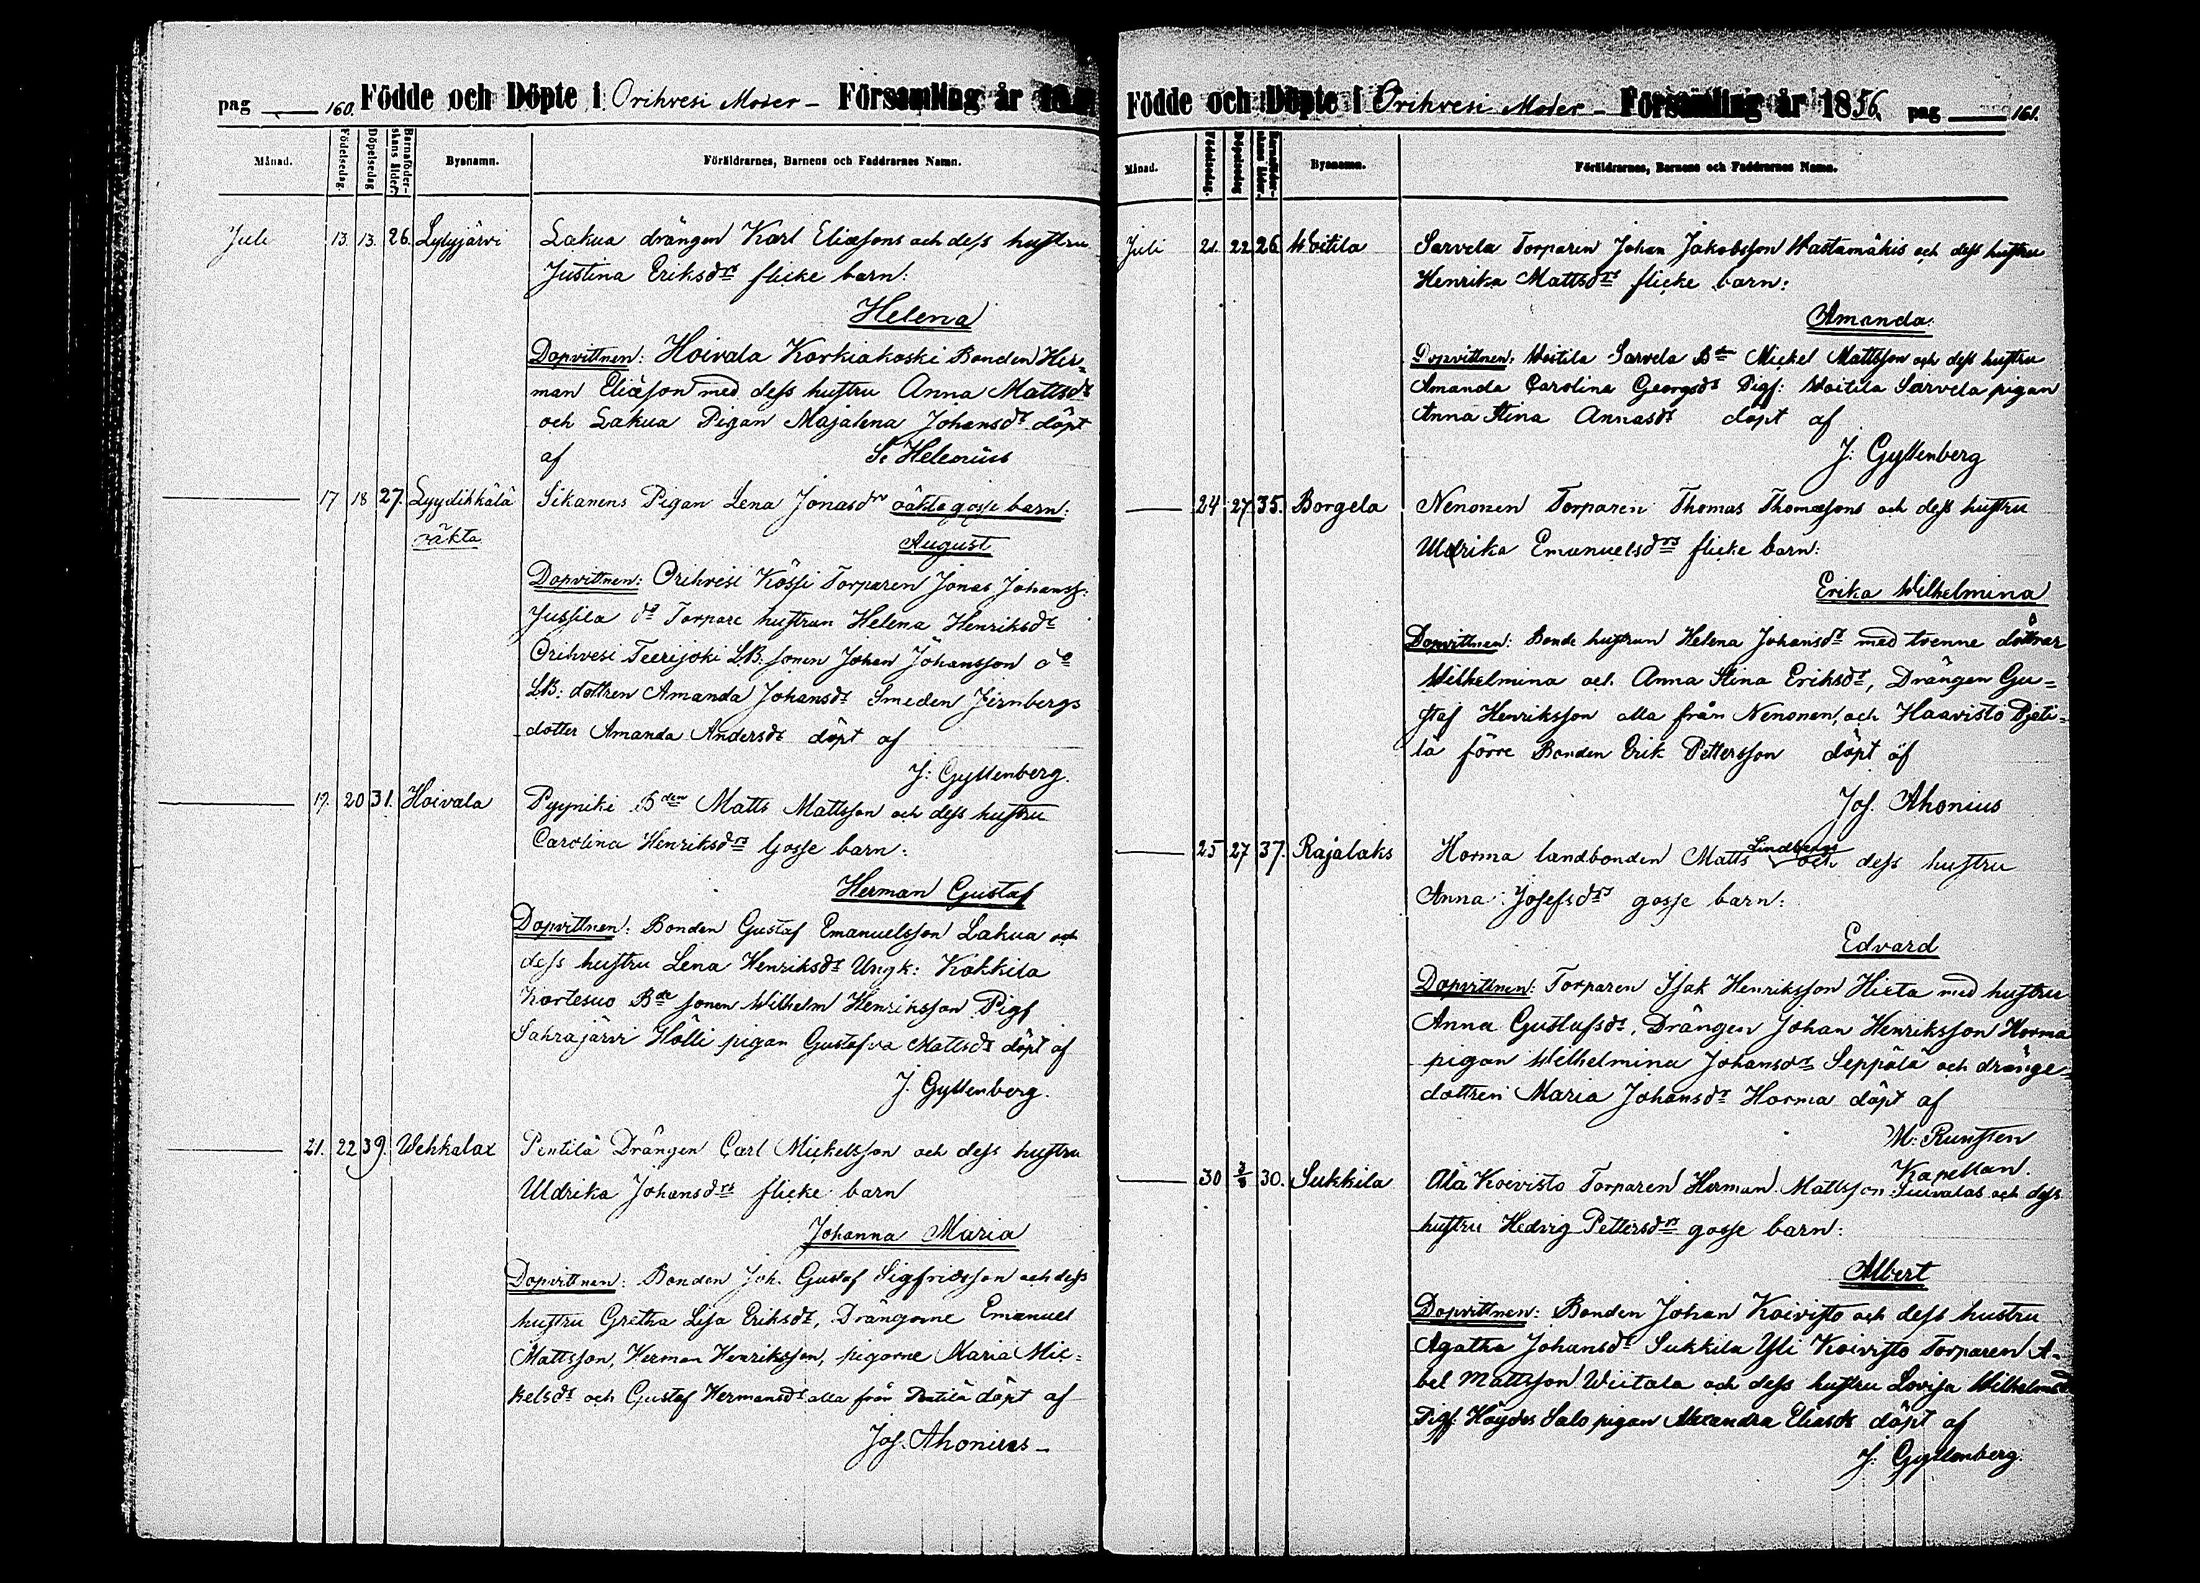 pag 160. Födde och Döpte i Orihvesi Moder - Församling år
Månad. Födelsedag. Döpelsedag Barnaföderskans ålder. Bysnamn. Föräldrarnes, Barnens och Faddrarnes Namn.
Juli 13. 13. 26. Lylyjärvi Lakua drängen Karl Eliæsons och dess hustru
Justina Eriksdrs flicke barn:
Helena
Dopvittnen: Hoivala Korkiakoski Bonden Her=
man Eliæson med dess hustru Anna Mattsdr
och Lakua Pigan Majalena Johansdr döpt
af S. Helenius
17 18 27. Lyydikkälä Sikanens Pigan Lena Jonasdrs oäkta gosse barn:
oäkta August
Dopvittnen: Orihvesi Kössi Torparen Jonas Johanss:
Jussila do Torpare hustrun Helena Henriksdr
Orihvesi Teerijoki LB: sonen Johan Johansson do
LB: dottren Amanda Johansdr Smeden Jernbergs
dotter Amanda Andersdr döpt af
J: Gyllenberg.
17. 20 31. Hoivala Pyyniki Bden Matts Mattsson och dess hustru
Carolina Henriksdrs Gosse barn:
Herman Gustaf
Dopvittnen: Bonden Gustaf Emanuelsson Lakua och
dess hustru Lena Henriksdr Ungk: Kokkila
Kortesuo Bde sonen Wilhelm Henriksson Pigf
Sahrajärvi Hölli pigan Gustafva Mattsdr döpt af
J. Gyllenberg.
21. 22 39. Wehkalax Pentilä Drängen Carl Mickelsson och dess hustru
Uldrika Johansdrs flicke barn
Johanna Maria
Dopvittnen: Bonden Joh. Gustaf Sigfridsson och dess
hustru Gretha Lisa Eriksdr, Drängarne Emanuel
Mattsson, Herman Henriksson, pigorne Maria Mic=
kelsdr och Gustaf Hermansdr alla från Pentilä döpt af
Jos. Ahonius -
Födde och Döpte i Orihvesi Moder - Församling år 1856. pag 161.
Månad. Födelsedag. Döpelsedag Barnaföderskans ålder. Bysnamn. Föräldrarnes, Barnens och Faddrarnes Namn.
Juli 21. 22 26. Woitila Sarvela Torparen Johan Jakobsson Wastamäkis och dess hustru
Henrika Mattsdrs flicke barn:
Amanda.
Dopvittnen: Woitila Sarvela Bde Mickel Mattsson och dess hustru
Amanda Carolina Georgsdr Pigf: Woitila Sarvela pigan
Anna Stina Annasdr döpt af
J: Gyllenberg
24 27 35. Borgela Nenonen Torparen Thomas Thomæsons och dess hustru
Uldrika Emanuelsdrs flicke barn:
Erika Wilhelmina
Dopvittnen: Bonde hustrun Helena Johansdr med tvenne döttrar
Wilhelmina och Anna Stina Eriksdr, Drängen Gu=
staf Henriksson alla från Nenonen, och Haavisto Pjeti=
lä förre Bonden Erik Pettersson döpt af
Jos. Ahonius
25 27 37. Rajalaks Horma landbonden Matts Lindbergs och dess hustru
Anna Josefsdrs gosse barn:
Edvard
Dopvittnen: Torparen Isak Henriksson Hieta med hustru
Anna Gustafsdr, Drängen Johan Henriksson Horma
pigan Wilhelmina Johansdr Seppälä och dränge=
dottren Maria Johansdr Horma döpt af
M: Runsten
Kapellan.
30 3/8 30. Sukkila Ala Koivisto Torparen Herman Mattsson Suivalas och dess
hustru Hedvig Pettersdrs gosse barn:
Albert
Dopvittnen: Bonden Johan Koivisto och dess hustru
Agatha Johansdr Sukkila Yli Koivisto Torparen A=
bel Mattsson Wiitala och dess hustru Lovisa Wilhelmsdr
Pigf. Höydes Salo pigan Alexandra Eliasdr döpt af
J: Gyllenberg.